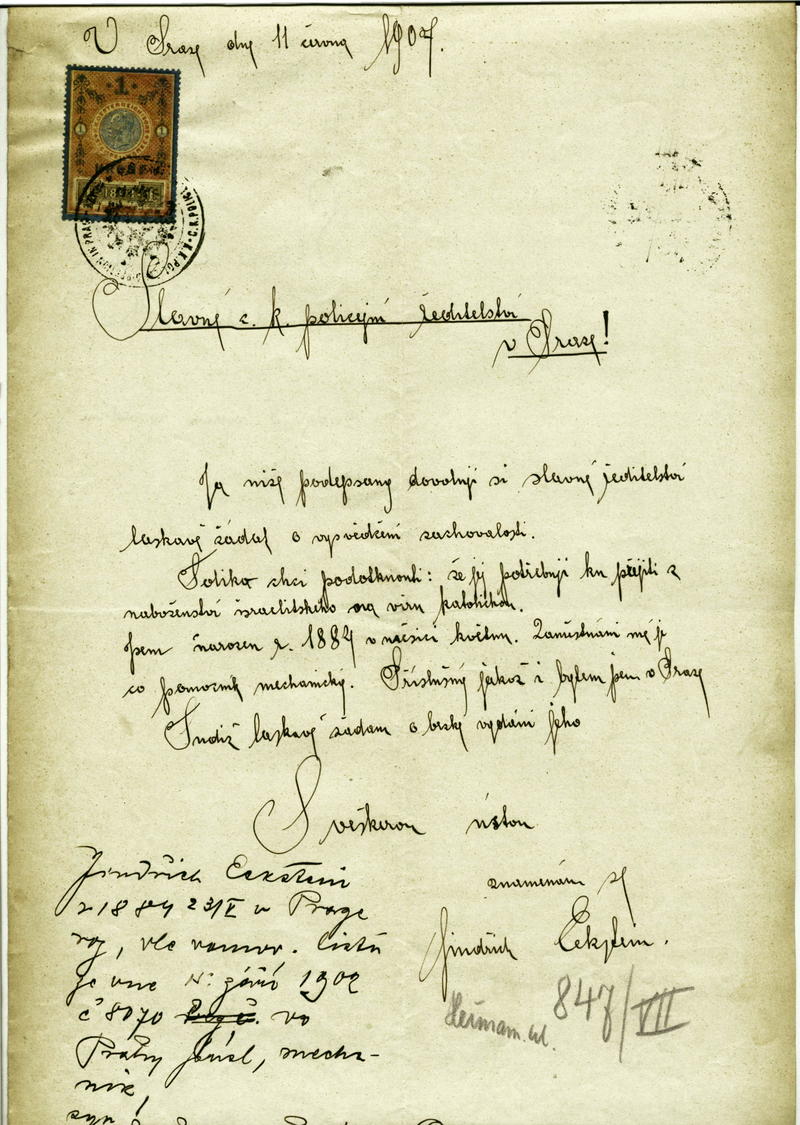 V Praze dny 11 června 1907.
1
Slavné c. k. policejní ředitelství
v Praze!
Já níže podepsaný dovoluji si slavné ředitelství
laskavě žádat o vysvědčení zachovalosti.
Tolika chci podotknouti: že jej potřebuji ku přejití z
naboženství israelitského na víru katolickou.
Jsem narozen r. 1884 v měsíci květnu. Zaměstnání mé je
co pomocník mechanický. Příslušný jakož i bytem jsem v Praze
Tudíž laskavě žádam o brzké vydání jeho
S veškerou úctou
znamenám se
Jindřich Eckstein.
Jindřich Eckstein
n 1884 23/V v Praze
listu
je září 1902
č 8070 vo
Prahy přísl, mecha-
nik,
syn
847/VII